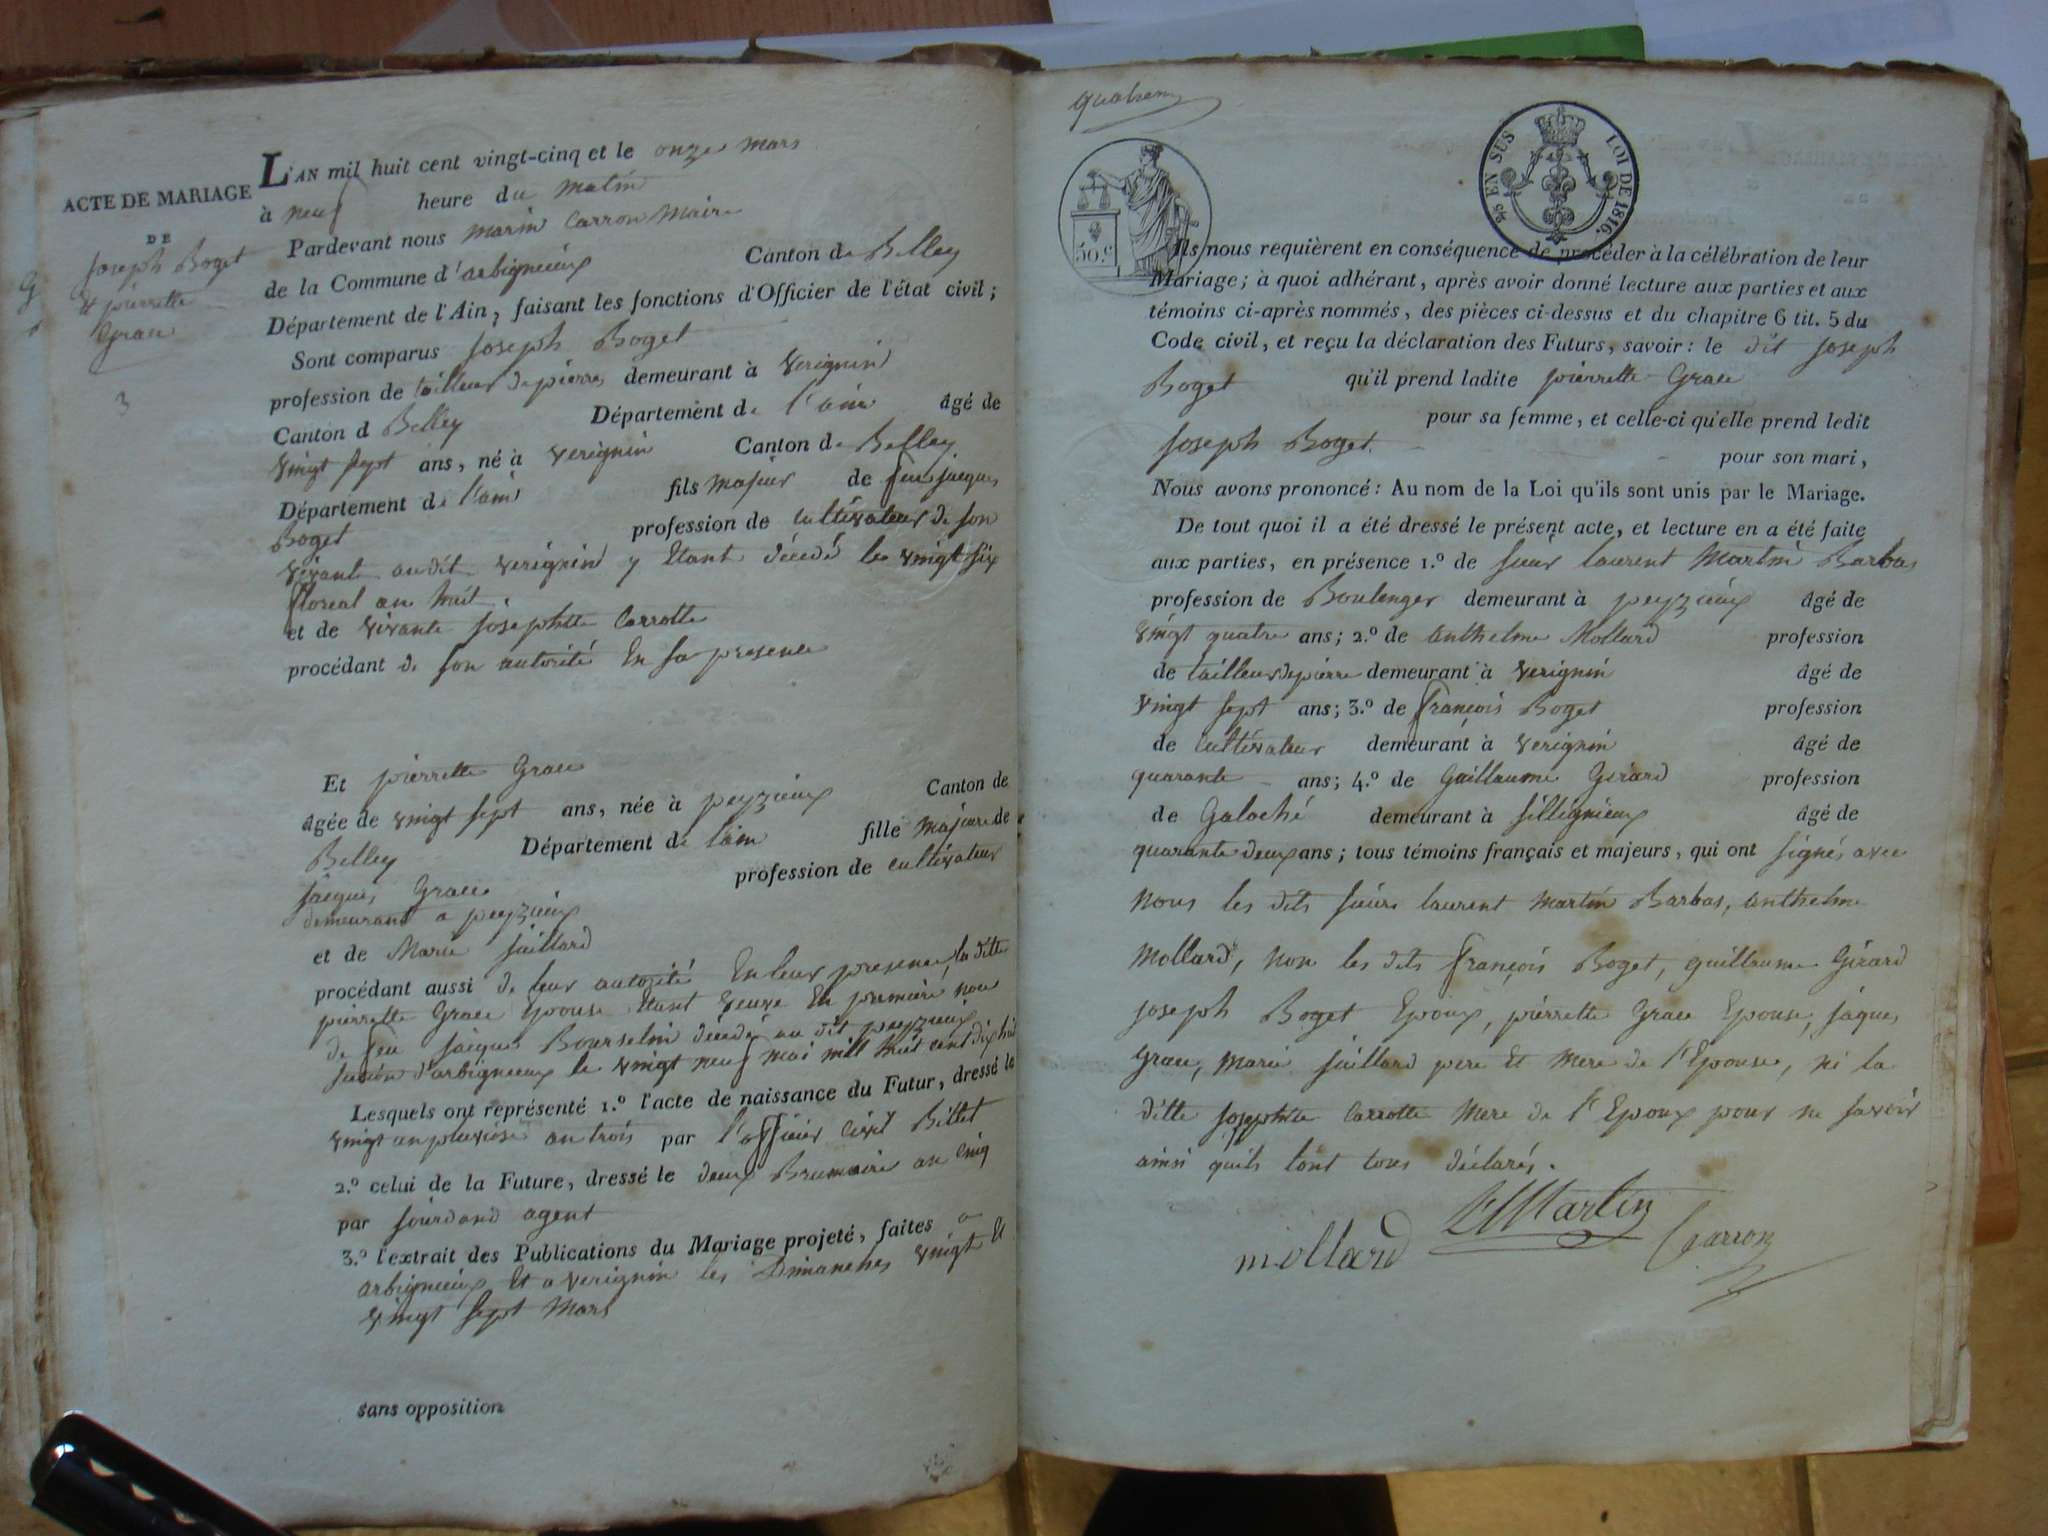 ACTE DE MARIAGE
DE
Joseph Boget
& pierrette
Grace
3
L'AN mil huit cent vingt-cinq et le onze mars
à neuf heure du matin
Pardevant nous marin Carron Maire
de la Commune d'arbignieux Canton de Belley
Département de l'Ain, faisant les fonctions d'Officier de l'état civil;
Sont comparus Joseph Boget
profession de tailleur de pierres demeurant à verignin
Canton d Belley Département de l'ain âgé de
vingt sept ans, né à verignin Canton de Belley
Département de l'ain fils majeur de feu jacques
Boget profession de cultivateur de son
vivant audit verignin y Etant décédé le vingt six
floreal an huit.
et de vivante Josephtte Carrotte
procédant de son autorité En sa presence
Et pierrette Grace
âgée de vingt sept ans, née à peyzieux Canton de
Belley Département de l'ain fille majeure de
jacques Grace profession de cultivateur
demeurant a peyzieux
et de Marie juillard
procédant aussi de leur autorité En leur presence, la ditte
pierrette Grace Epouse Etant veuve En premiere noce
de feu jacques Bourselin décédé au dit peyzieux
section d'arbignieux le vingt neuf mai mill huit cent dix huit
Lesquels ont représenté 1.º l'acte de naissance du Futur, dressé le
vingt un pluviose an trois par l'officier civil Billet
2.º celui de la Future, dressé le deux Brumaire an cinq
par jourdand agent
3.º l'extrait des Publications du Mariage projeté, faites a
arbignieux Et a verignin les Dimanches vingt Et
vingt sept Mars
sans opposition
25 EN SUS LOI DE 1816.
50.c
Ils nous requièrent en conséquence de procéder à la célébration de leur
Mariage; à quoi adhérant, après avoir donné lecture aux parties et aux
témoins ci-après nommés, des pièces ci-dessus et du chapitre 6 tit. 5 du
Code civil, et reçu la déclaration des Futurs, savoir: le dit Joseph
Boget qu'il prend ladite pierrette Grace
pour sa femme, et celle-ci qu'elle prend ledit
Joseph Boget. pour son mari,
Nous avons prononcé: Au nom de la Loi qu'ils sont unis par le Mariage.
De tout quoi il a été dressé le présent acte, et lecture en a été faite
aux parties, en présence 1.º de sieur laurent Martin Barbas
profession de Boulenger demeurant à peyzieux âgé de
vingt quatre ans; 2.º de anthelme Mollard profession
de tailleur de pierre demeurant à verignin âgé de
vingt sept ans; 3.º de françois Boget profession
de cultivateur demeurant à verignin âgé de
quarante ans; 4.º de Guillaume Girard profession
de Galoché demeurant à sillignieux âgé de
quarante deux ans; tous témoins français et majeurs, qui ont signés avec
nous les dits sieurs laurent martin Barbas, anthelme
Mollard, non les dits françois Boget, guillaume Girard
joseph Boget Epoux, pierrette Grace Epouse, jaques
Grace, Marie juillard pere Et mere de l'Epouse, ni la
ditte josephtte Carrotte mere de l'Epoux pour ne savoir
ainsi quils l'ont tous déclarés.
mollard LMartin Carron